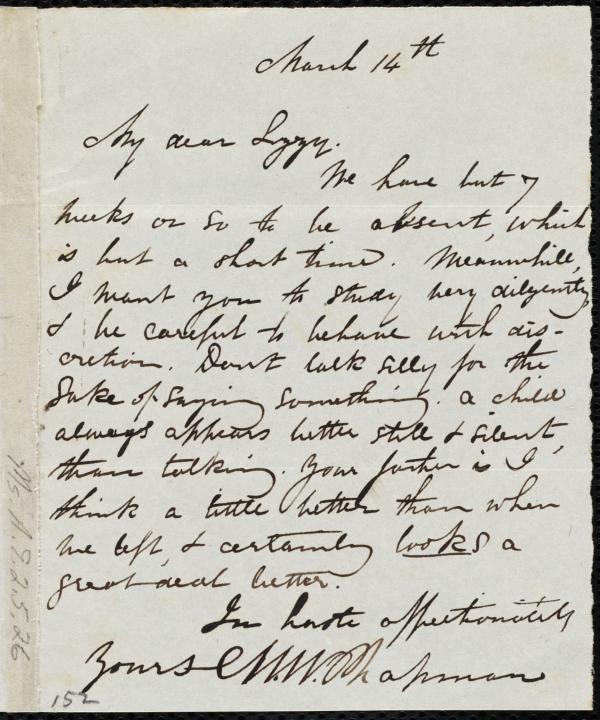 March 14th
My dear Lizzy.
We have but 7
weeks or so to be absent, which
is but a short time. Meanwhile,
I want you to study very diligently
& be careful to behave with dis-
cretion. Dont talk silly for the
sake of saying something. a child
always appears better still & silent,
than talking. Your father is I
think a little better than when
we left, & certainly looks a
great deal better.
In haste affectionately
Yours M. W. Chapman
152
Ms. A.9.2.5.26